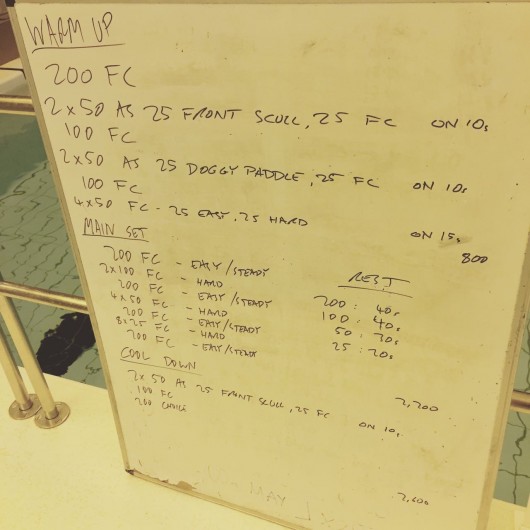 WARM UP
200 FC
2x50 AS 25 FRONT SCULL, 25 FC ON 10s
100 FC
2x50 AS 25 DOGGY PADDLE, 25 FC ON 10s
100 FC
4x50 FC - 25 EASY, 25 HARD ON 15s
800
MAIN SET
REST
200 FC - EASY/STEADY
2x100 FC - HARD
200 FC - EASY/STEADY
4x50 FC - HARD
200 FC - EASY/STEADY
8x25 FC - HARD
200 FC - EASY/STEADY
200 : 40s
100 : 40s
50 : 30s
25 : 20s
2,200
COOL DOWN
2x50 AS 25 FRONT SCULL, 25 FC ON 10s
100 FC
200 CHOICE
2,600
MAY